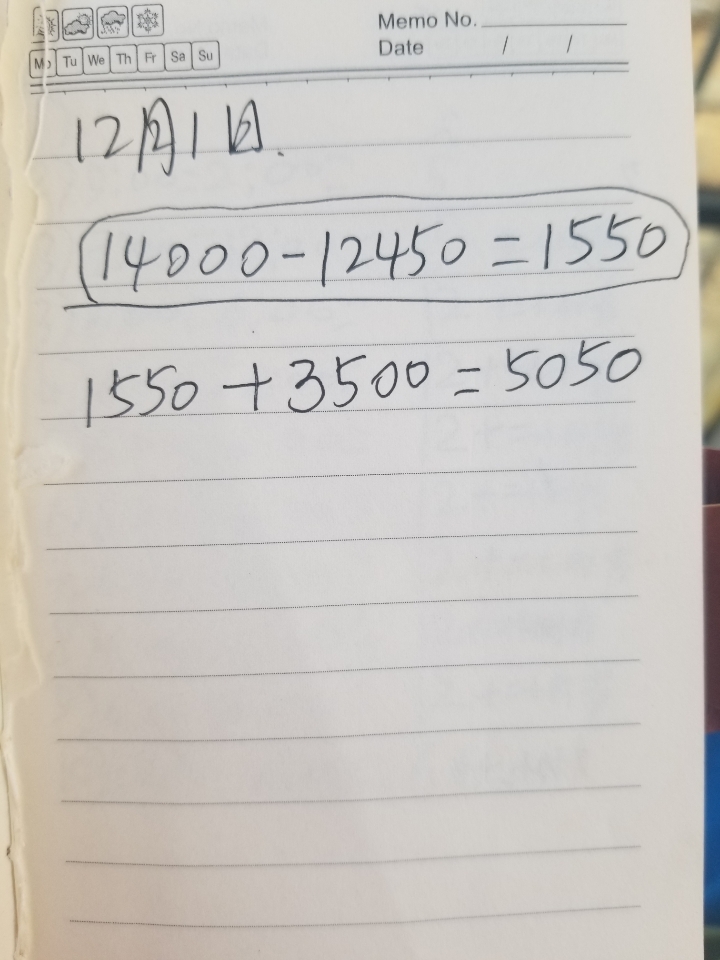 Memo No.
Mo Tu We Th Fr Sa Su
Date / /
12月1日.
14000-12450=1550
1550+3500=5050